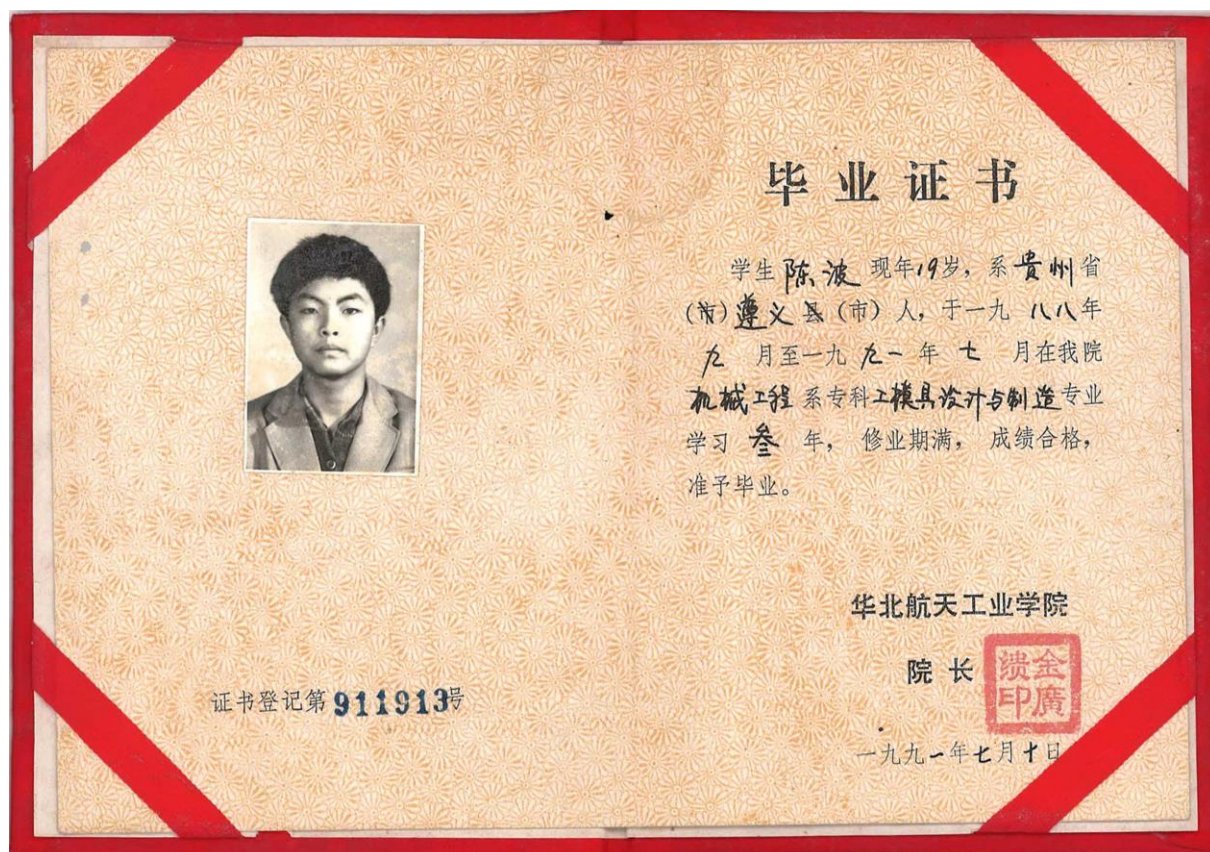 毕业证书
学生陈波 现年19岁，系贵州省
(市)遵义县(市)人，于一九八八年
九月至一九九一年七月在我院
机械工程系专科工模具设计与制造专业
学习叁年，修业期满，成绩合格，
准予毕业。
华北航天工业学院
院长
金廣
溃印
一九九一年七月十日
证书登记第911913号